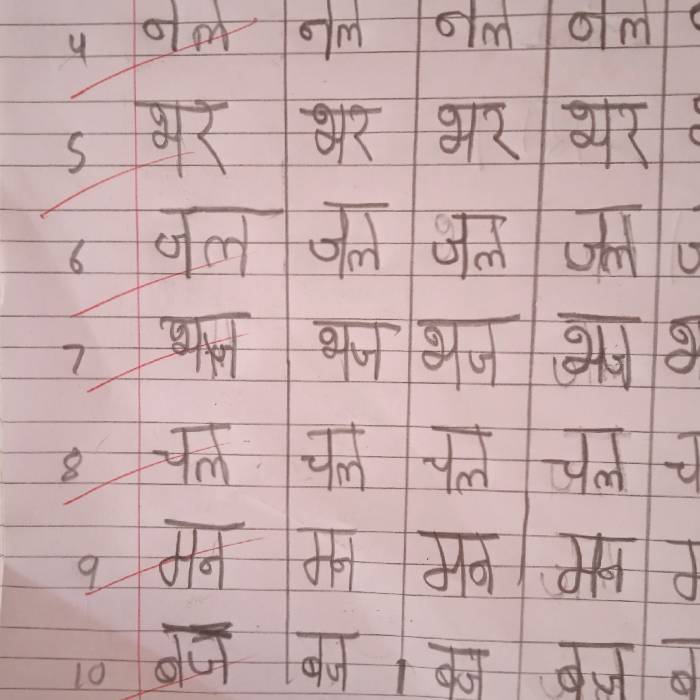 4 नल नल नल नल
5 भर भर भर भर
6 जल जल जल जल
7 भज भज भज भज
8 चल चल चल चल
9 मन मन मन मन
10 बज बज बज बज